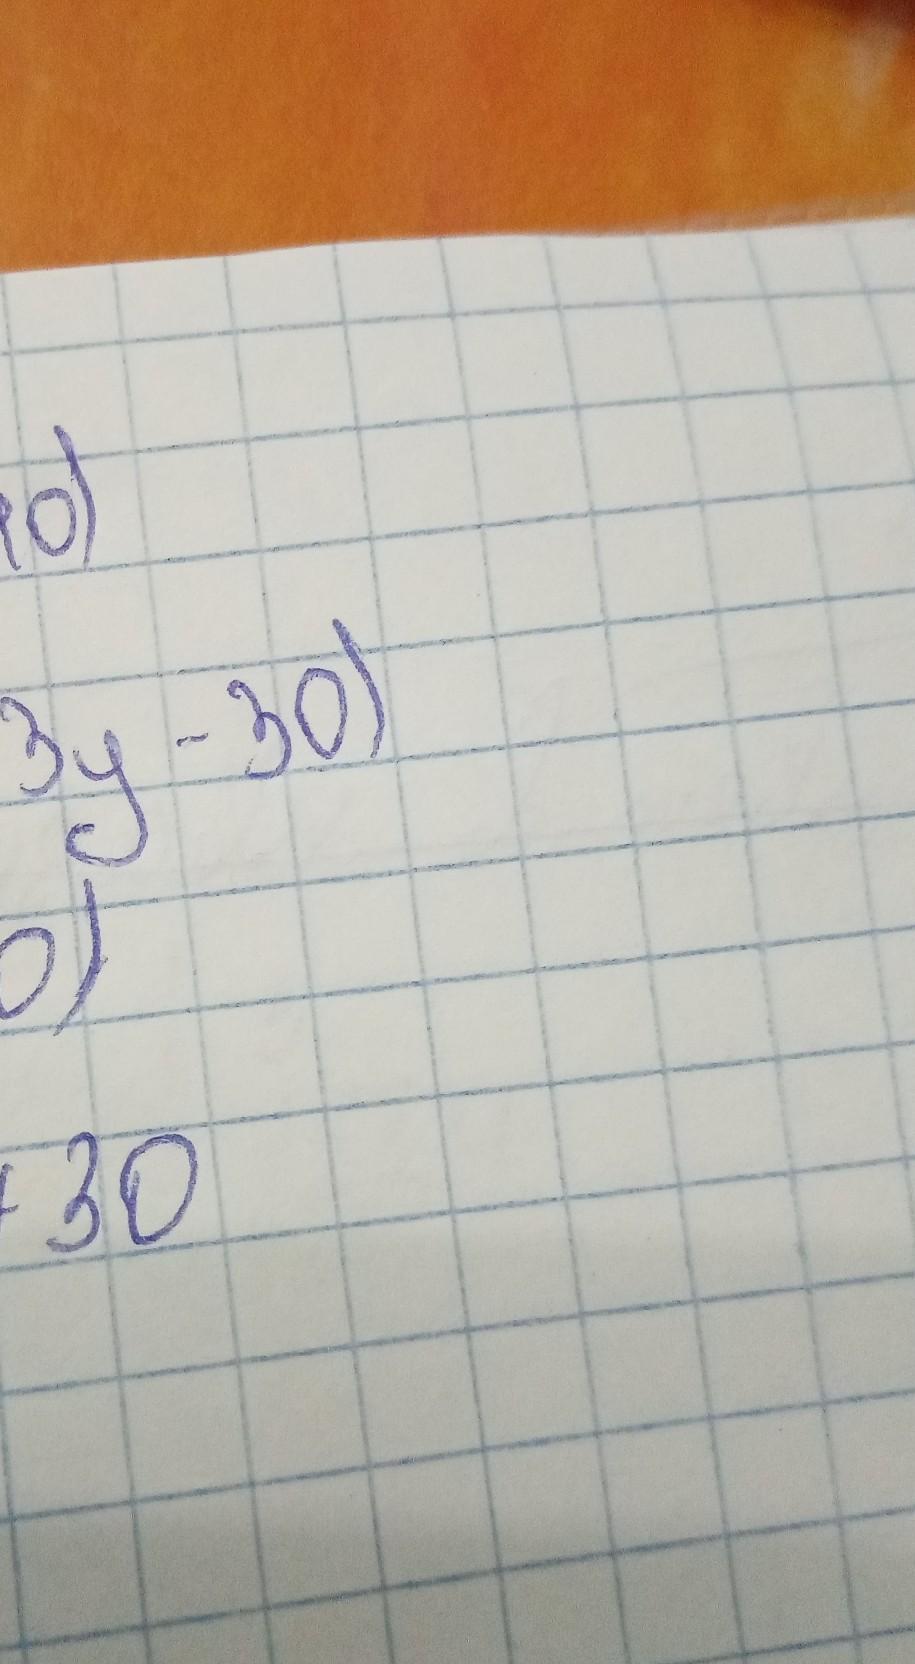 10)
3y - 30)
0)
+ 30